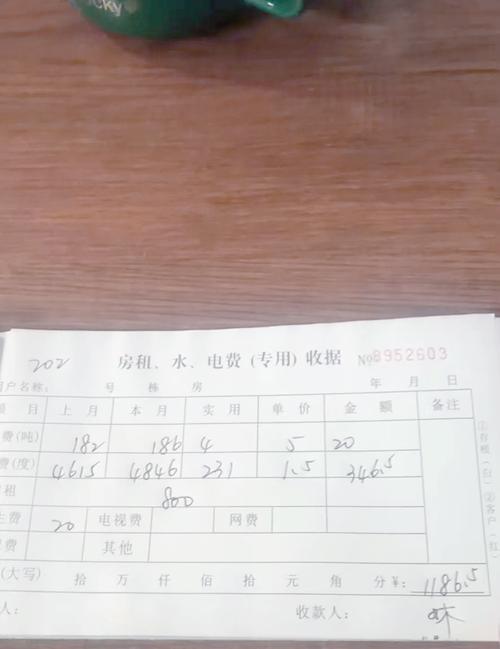 cky
202 房租、水、电费(专用)收据 №8952603
户名称: 号 栋 房 年 月 日
项 目 上 月 本 月 实 用 单 价 金 额 备注
费(吨) 182 186 4 5 20
费(度) 4615 4846 231 1.5 346.5
租 800
生费 20 电视费 网费
费 其他
(大写) 拾 万 仟 佰 拾 元 角 分 ¥: 1186.5
人: 收款人:
①存根(白) ②客户(红)